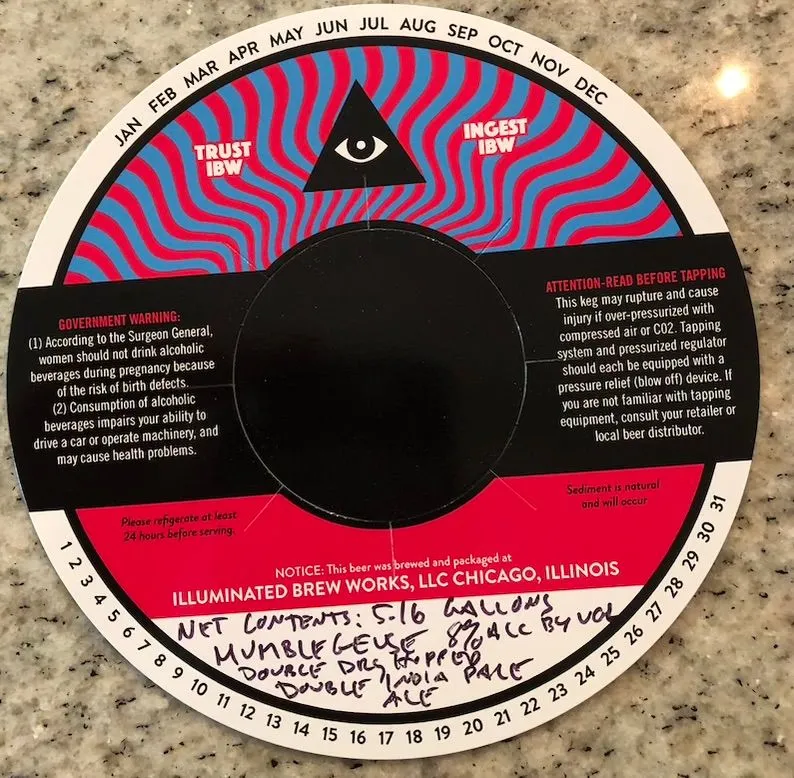 JAN FEB MAR APR MAY JUN JUL AUG SEP OCT NOV DEC
TRUST
IBW
INGEST
IBW
GOVERNMENT WARNING:
(1) According to the Surgeon General,
women should not drink alcoholic
beverages during pregnancy because
of the risk of birth defects.
(2) Consumption of alcoholic
beverages impairs your ability to
drive a car or operate machinery, and
may cause health problems.
ATTENTION-READ BEFORE TAPPING
This keg may rupture and cause
injury if over-pressurized with
compressed air or CO2. Tapping
system and pressurized regulator
should each be equipped with a
pressure relief (blow off) device. If
you are not familiar with tapping
equipment, consult your retailer or
local beer distributor.
Please refigerate at least
24 hours before serving.
Sediment is natural
and will occur
NOTICE: This beer was brewed and packaged at
ILLUMINATED BREW WORKS, LLC CHICAGO, ILLINOIS
NET CONTENTS: 5.16 GALLONS
MUMBLEGEUSE 8% ALC BY VOL
DOUBLE DRY HOPPED
DOUBLE INDIA PALE
ALE
1 2 3 4 5 6 7 8 9 10 11 12 13 14 15 16 17 18 19 20 21 22 23 24 25 26 27 28 29 30 31